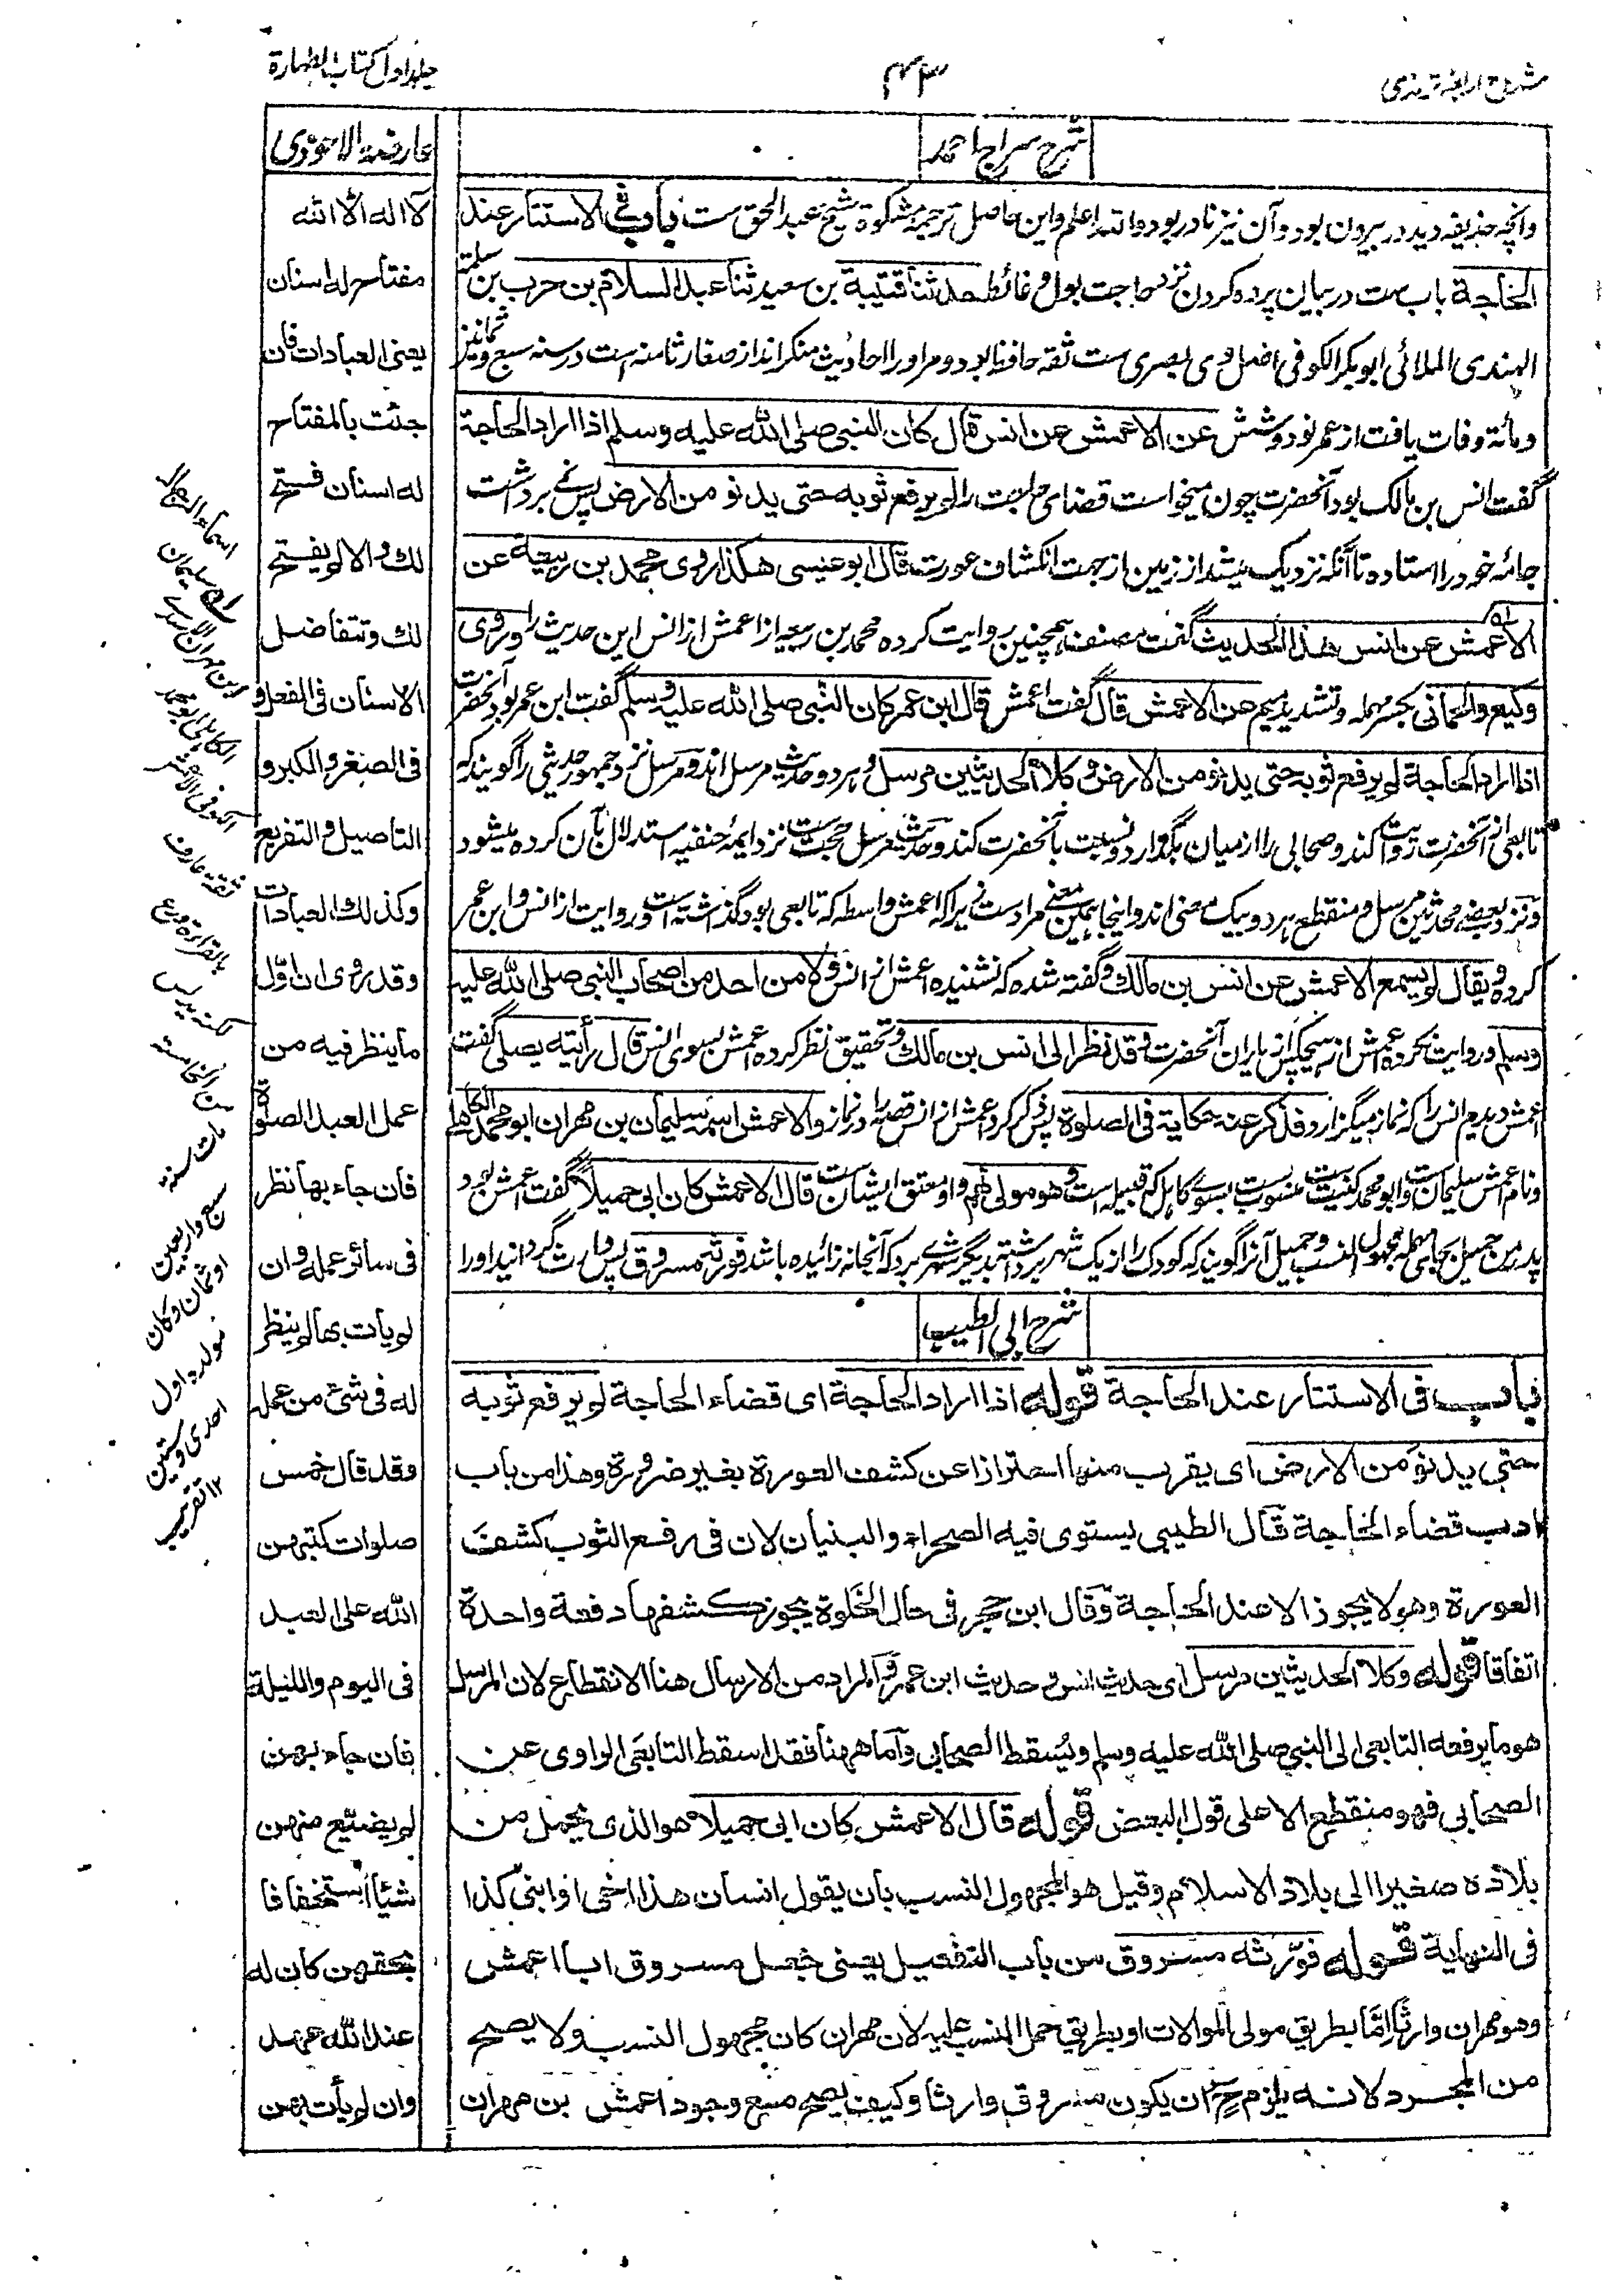 جلد اول کتاب الطهارة
۴۳
شروح اربعه ترمذی
شرح سراج احمد
وانچه حذیفه دید در بیرون بود و آن نیز نادر بود والله اعلم و این حاصل ترجمه مشکوة شیخ عبد الحق ست باب فی الاستتار عند
الحاجة باب ست در بیان پرده کردن نزد حاجت بول و غائط حدثنا قتیبة بن سعید ثنا عبد السلام بن حرب بن سلمة
الهندی الملائی ابو بکر الکوفی اصل وی بصری ست ثقه حافظ بود و مر او را احادیث منکر اند از صغار ثامنه است در سنه سبع و ثمانین
و مائة وفات یافت از عمر نود و شش عن الاعمش عن انس قال کان النبی صلی الله علیه وسلم اذا اراد الحاجة
گفت انس بن مالک بود آنحضرت چون میخواست قضای حاجت را لم یرفع ثوبه حتی یدنو من الارض پس نمے برداشت
جائه خود را استاده تا آنکه نزدیک میشد از زمین از جهت انکشاف عورت قال ابو عیسی هکذا روی محمد بن ربیعة عن
الاعمش عن انس هذا الحدیث گفت مصنف همچنین روایت کرده محمد بن ربیعه از اعمش از انس این حدیث را و روی
وکیع والحمانی بکسر مهمله و تشدید میم عن الاعمش قال گفت اعمش قال ابن عمر کان النبی صلی الله علیه وسلم گفت ابن عمر بود آنحضرت
اذا اراد الحاجة لم یرفع ثوبه حتی یدنو من الارض و کلا الحدیثین مرسل و هر دو حدیث مرسل اند و مرسل نزد جمهور حدیثی را گویند که
تابعی از آنحضرت روایت کند و صحابی را از میان بگذارد و نسبت بآنحضرت کند و حدیث مرسل حجت ست نزد ایمهٔ حنفیه استدلال بآن کرده میشود
و نزد بعضے محدثین مرسل و منقطع هر دو بیک معنی اند و اینجا همین معنے مراد ست زیرا که اعمش واسطه که تابعی بود گذاشته است و روایت از انس و ابن عمر
کرده و یقال لم یسمع الاعمش عن انس بن مالک و گفته شده که نشنیده اعمش از انس ولا من احد من اصحاب النبی صلی الله علیه
وسلم و روایت نکرده اعمش از هیچیکس از یاران آنحضرت و قد نظر الی انس بن مالک و تحقیق نظر کرده اعمش بسوی انس قال رأیته یصلی گفت
اعمش دیدم انس را که نماز میگزارد فذکر عنه حکایة فی الصلوة پس ذکر کرد اعمش از انس قصه را در نماز والاعمش اسمه سلیمان بن مهران ابو محمد الکاهلی
و نام اعمش سلیمان ست و ابو محمد کنیت ست منسوب ست بسوے کاهل که قبیله است و هو مولی لهم و او معتق ایشان ست قال الاعمش کان ابی حمیلا گفت اعمش بود
پدر من حمیل بحای مهمله مجهول النسب و حمیل آنرا گویند که کودک را از یک شهر برداشته بدیگر شهرے برد که آنجا نه زائیده باشد فورثه مسروق پس وارث گردانید او را
شرح ابی الطیب
باب فی الاستتار عند الحاجة قوله اذا اراد الحاجة ای قضاء الحاجة لم یرفع ثوبه
حتی یدنو من الارض ای یقرب منها احترازا عن کشف العورة بغیر ضرورة وهذا من باب
ادب قضاء الحاجة قال الطیبی یستوی فیه الصحراء والبنیان لان فی رفع الثوب کشف
العورة وهو لا یجوز الا عند الحاجة وقال ابن حجر فی حال الخلوة یجوز کشفها دفعة واحدة
اتفاقا قوله وکلا الحدیثین مرسل ای حدیث انس و حدیث ابن عمر والمراد من الارسال هنا الانقطاع لان المرسل
هو ما یرفعه التابعی الی النبی صلی الله علیه وسلم ویسقط الصحابی وآما ههنا فقد اسقط التابعی الراوی عن
الصحابی فهو منقطع الا علی قول البعض قوله قال الاعمش کان ابی حمیلا هو الذی یحمل من
بلاده صغیرا الی بلاد الاسلام وقیل هو المجهول النسب بان یقول انسان هذا اخی او ابنی کذا
فی النهایة قوله فورثه مسروق من باب التفعیل یعنی جعل مسروق ابا اعمش
وهو مهران وارثا اما بطریق مولی الموالات او بطریق حمل النسب علیه لان مهران کان مجهول النسب ولا یصح
من المجرد لانه یلزم ح ان یکون مسروق وارثا وکیف یصح مع وجود اعمش بن مهران
عارضة الاحوذی
لا اله الا الله
مفتاح له اسنان
یعنی العبادات فان
جئت بالمفتاح
له اسنان فتح
لک والا لم یفتح
لک وتتفاضل
الاسنان فی الفعل و
فی الصغر والکبر و
التاصیل والتفریع
وکذلک العبادات
وقد روی ان اول
ما ینظر فیه من
عمل العبد الصلوة
فان جاء بها نظر
فی سائر عمله وان
لم یات بها لم ینظر
له فی شئ من عمله
وقد قال خمس
صلوات کتبهن
الله علی العبد
فی الیوم واللیلة
فان جاء بهن
لم یضیع منهن
شیئا استخفافا
بحقهن کان له
عند الله عهد
وان لم یأت بهن
اسماء الرجال
سلیمان
بن مهران الاسدی
الکاهلی ابو محمد
الکوفی الاعمش
ثقة عارف
بالقراءة ورع
لکنه یدلس
من الخامسة
مات سنة
سبع واربعین
او ثمان وکان
مولده اول
احدی وستین
۱۲ تقریب